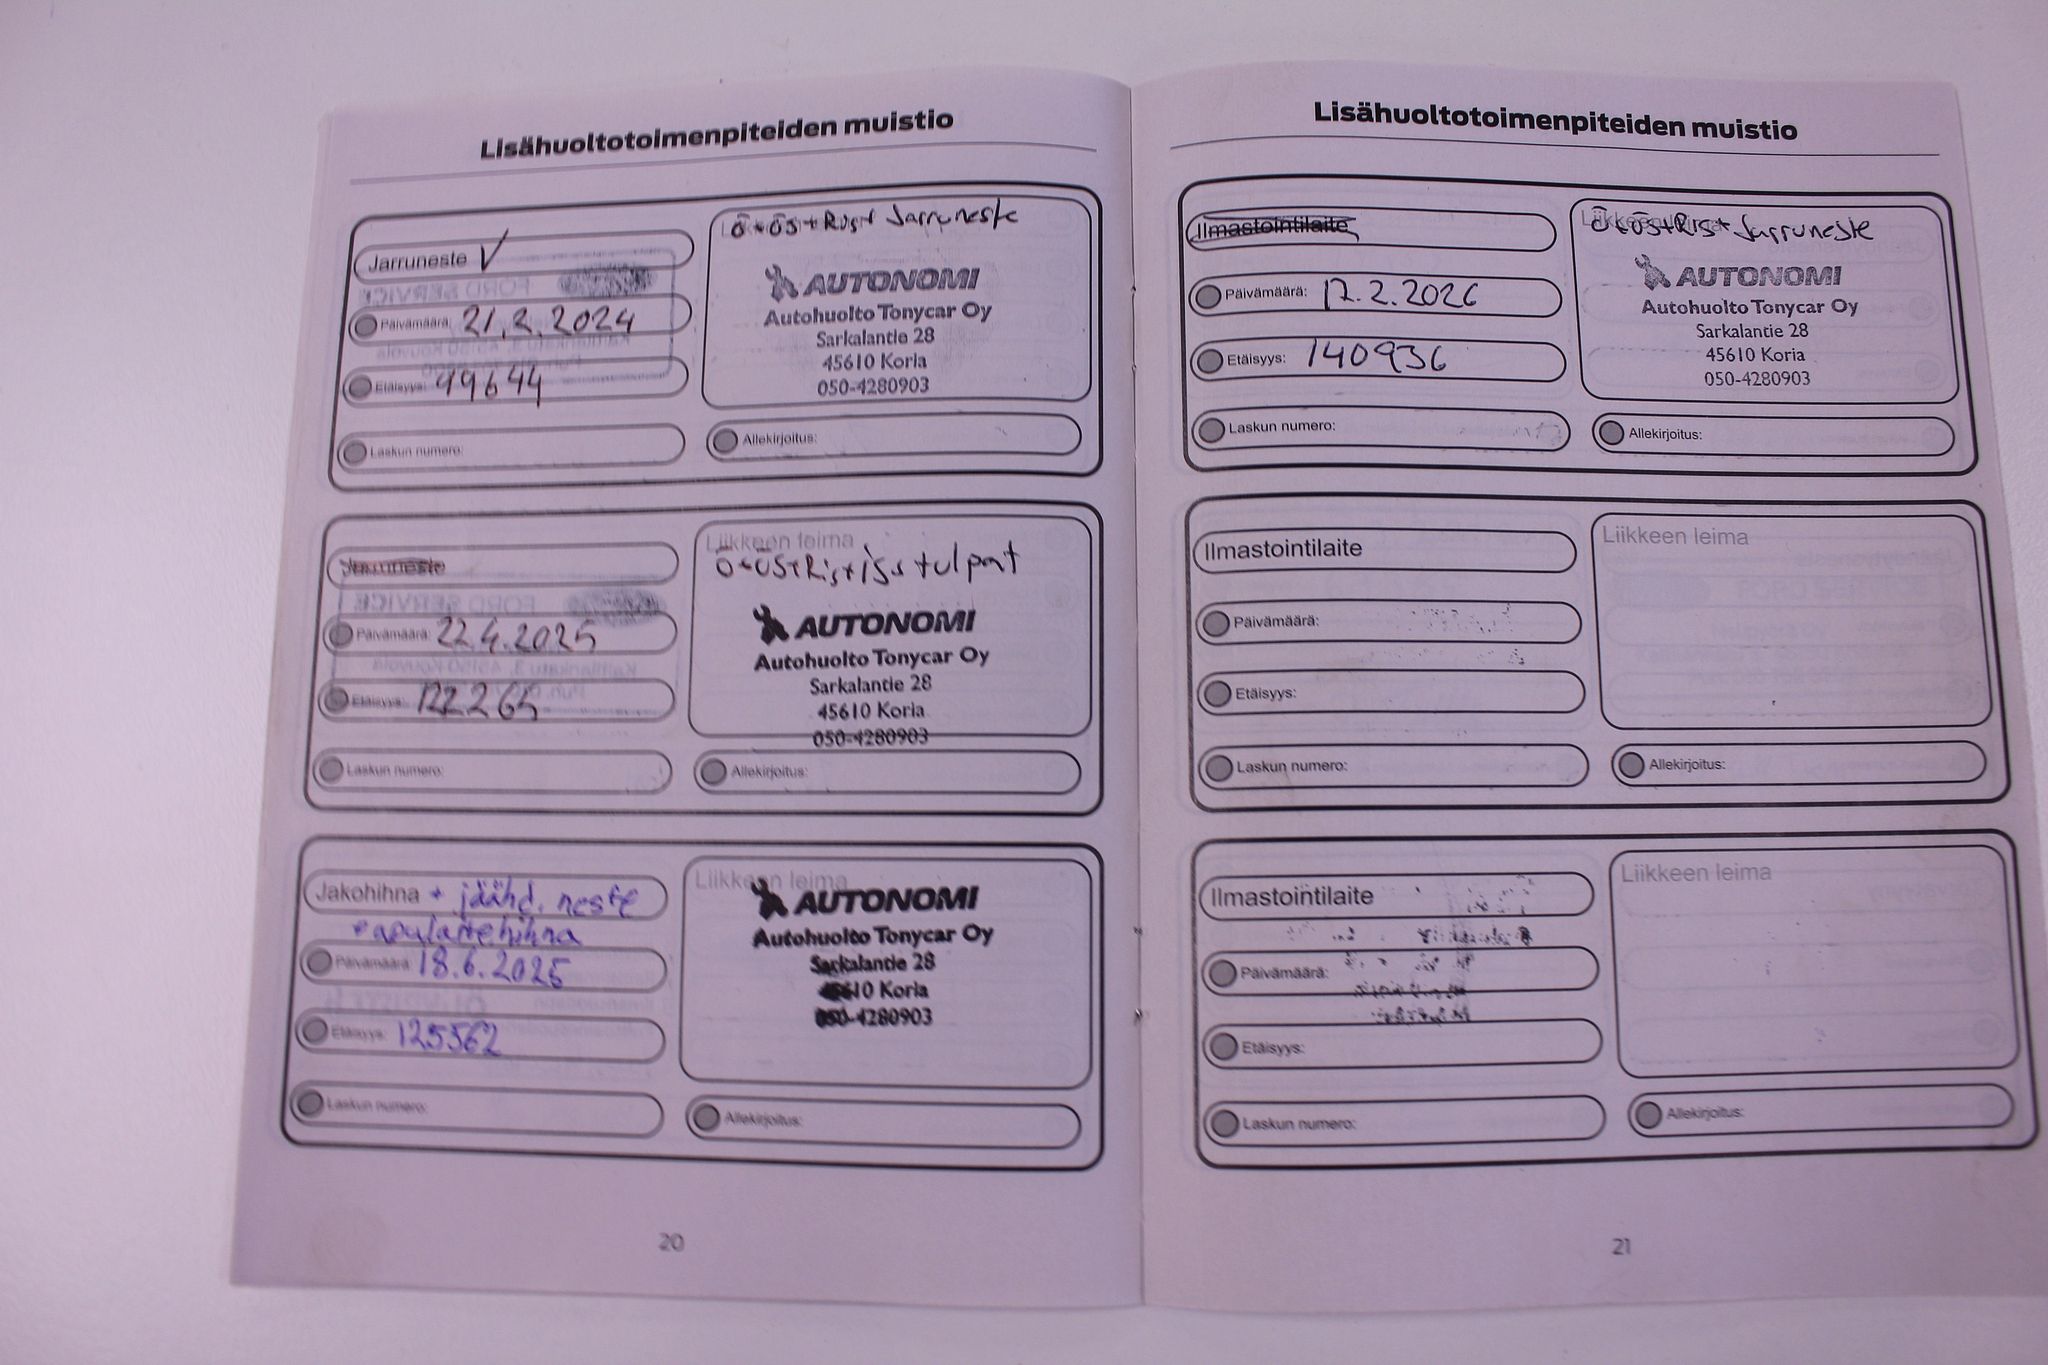 Lisähuoltotoimenpiteiden muistio
Jarruneste
Ö+ös+Rus+ Jarruneste
AUTONOMI
Autohuolto Tonycar Oy
Sarkalantie 28
45610 Koria
050-4280903
Päivämäärä: 21.2.2024
Etäisyys: 99644
Laskun numero:
Allekirjoitus:
Jarruneste
Liikkeen leima
Ö+ös+Ris+iss+tulpat
AUTONOMI
Autohuolto Tonycar Oy
Sarkalantie 28
45610 Koria
050-4280903
Päivämäärä: 22.4.2025
Etäisyys: 122265
Laskun numero:
Allekirjoitus:
Jakohihna + jäähd. neste
+ apulaitehihna
Liikkeen leima
AUTONOMI
Autohuolto Tonycar Oy
Sarkalantie 28
45610 Koria
050-4280903
Päivämäärä: 18.6.2025
Etäisyys: 125562
Laskun numero:
Allekirjoitus:
20
Lisähuoltotoimenpiteiden muistio
Ilmastointilaite
Liikkeen leima
Ö+ös+Ris+Jarruneste
AUTONOMI
Autohuolto Tonycar Oy
Sarkalantie 28
45610 Koria
050-4280903
Päivämäärä: 17.2.2026
Etäisyys: 140936
Laskun numero:
Allekirjoitus:
Ilmastointilaite
Liikkeen leima
Päivämäärä:
Etäisyys:
Laskun numero:
Allekirjoitus:
Ilmastointilaite
Liikkeen leima
Päivämäärä:
Etäisyys:
Laskun numero:
Allekirjoitus:
21